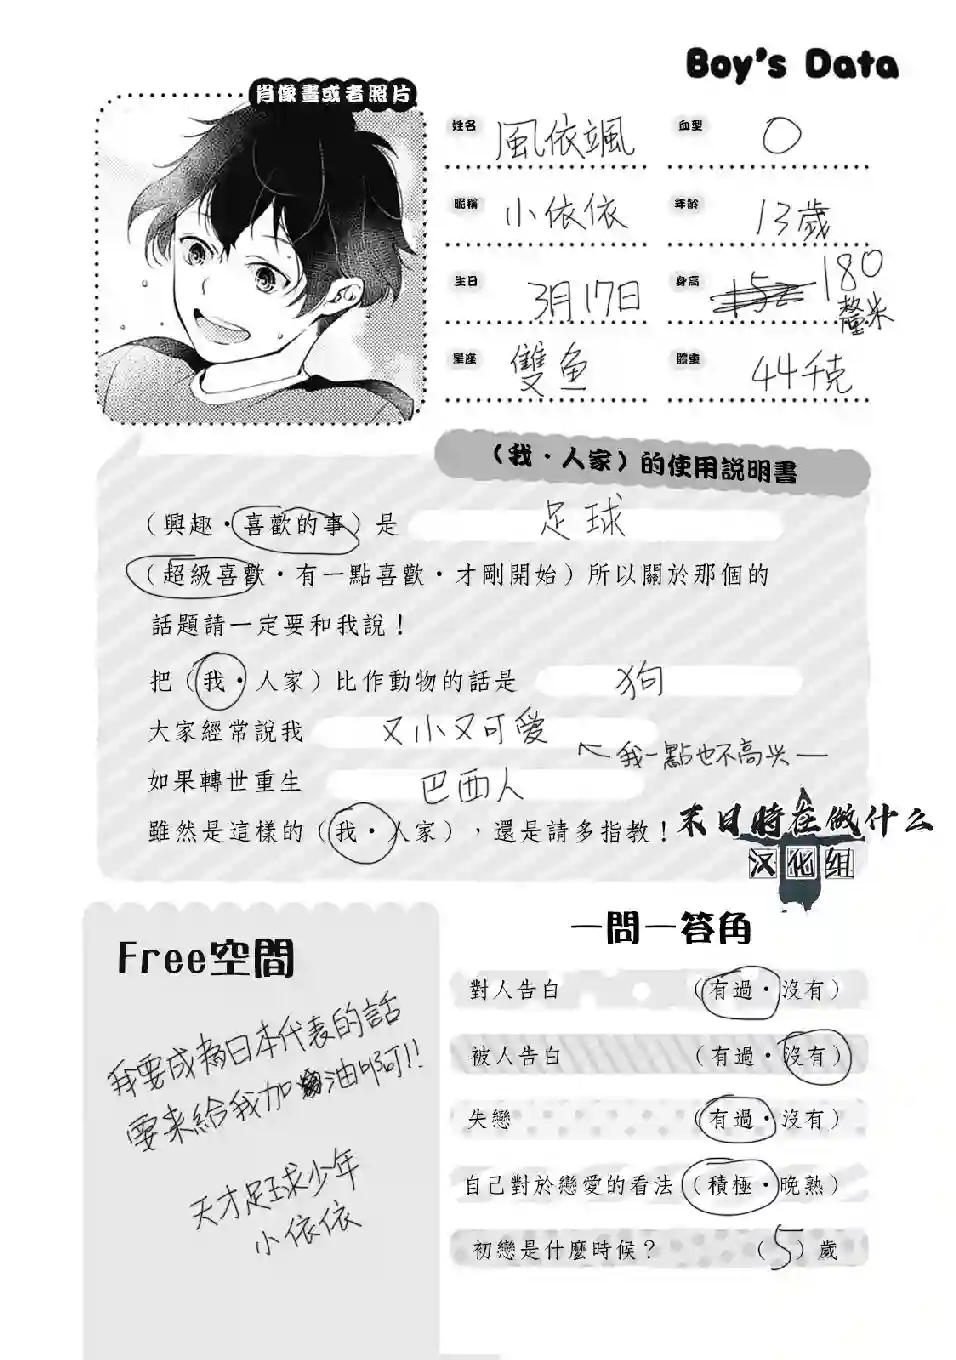 Boy's Data
肖像畫或者照片
姓名 風依颯
血型 O
昵稱 小依依
年齡 13歲
生日 3月17日
身高 152 180釐米
星座 雙鱼
體重 44千克
（我・人家）的使用説明書
（興趣・喜歡的事）是 足球
（超級喜歡・有一點喜歡・才剛開始）所以關於那個的
話題請一定要和我說！
把（我・人家）比作動物的話是 狗
大家經常說我 又小又可愛
←我一點也不高兴—
如果轉世重生 巴西人
雖然是這樣的（我・人家），還是請多指教！
末日時在做什么
汉化组
Free空間
我要成為日本代表的話
要来給我加油啊!!
天才足球少年
小依依
一問一答角
對人告白 （有過・沒有）
被人告白 （有過・沒有）
失戀 （有過・沒有）
自己對於戀愛的看法（積極・晚熟）
初戀是什麼時候？ （5）歲